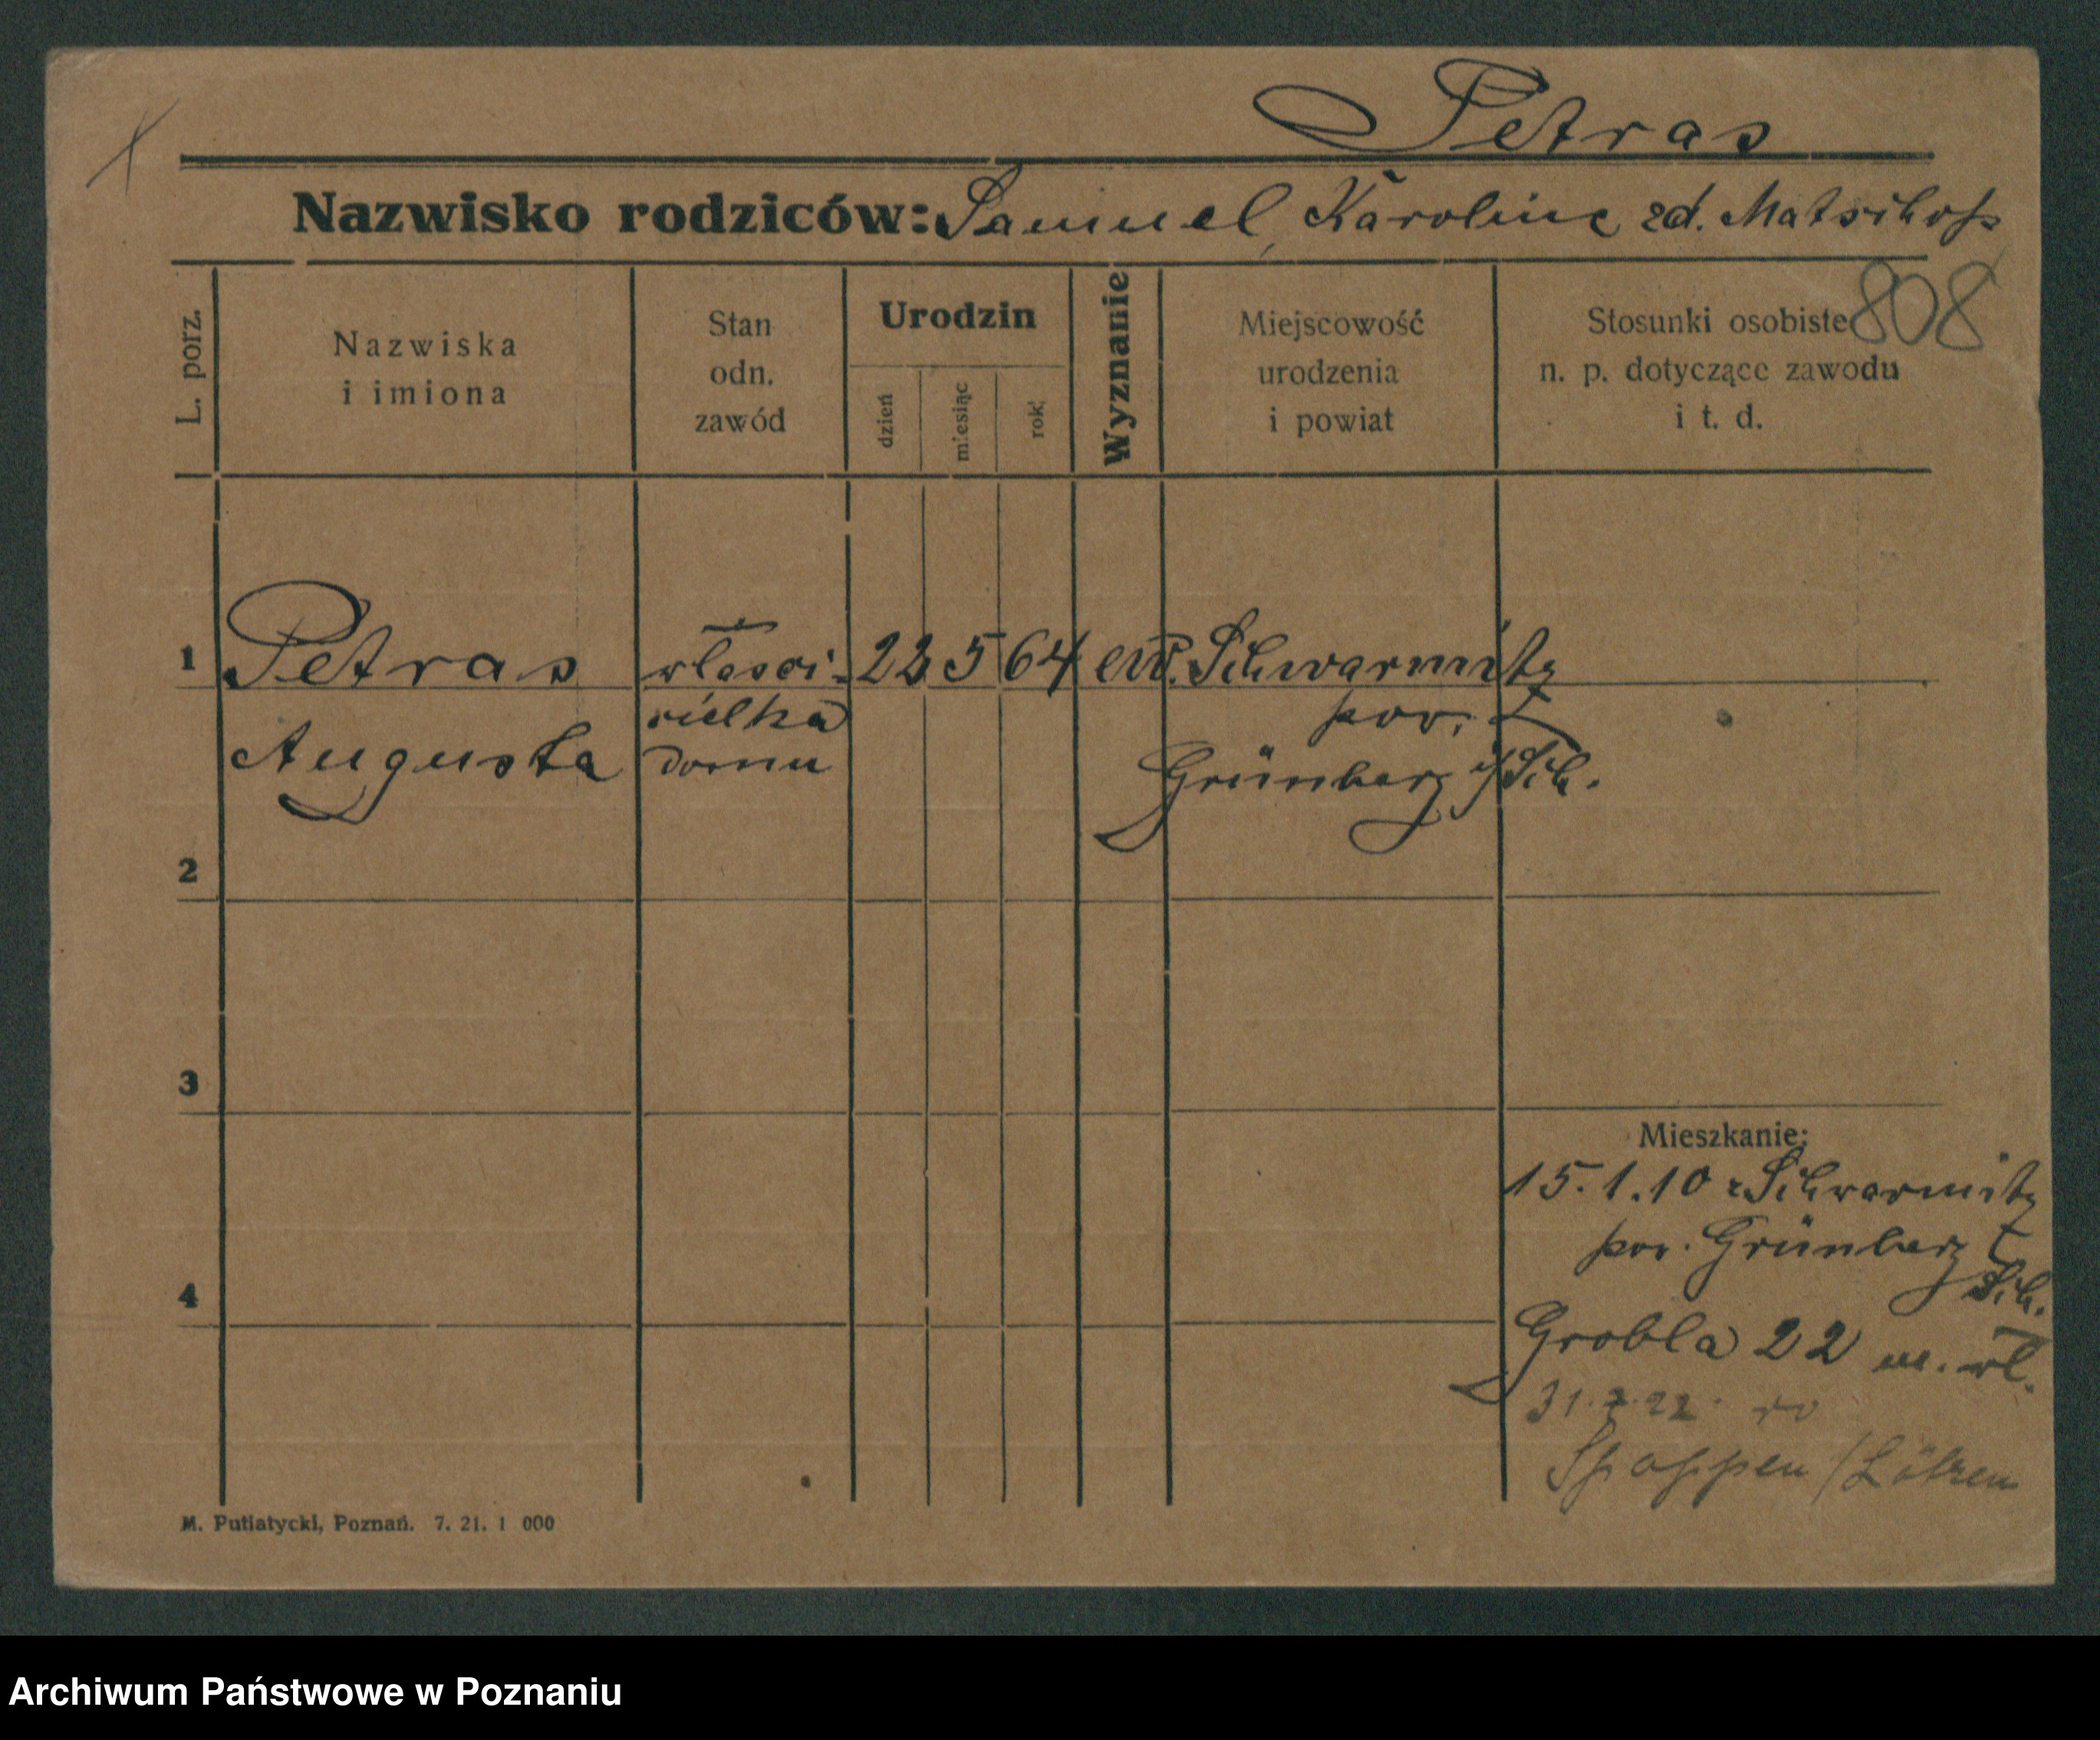 Petras
Nazwisko rodziców: Samuel, Karoline zd. Matschoss
808
L. porz.
Nazwiska
i imiona
Stan
odn.
zawód
Urodzin
dzień
miesiąc
rok
Wyznanie
Miejscowość
urodzenia
i powiat
Stosunki osobiste
n. p. dotyczące zawodu
i t. d.
1 Petras właści- 22 5 64 ew. Schwarmitz
cielka pow.
Augusta domu Grünberg i/Sch.
2
3
Mieszkanie:
15.1.10 z Schwarmitz
pow. Grünberg
Sch.
4
Grobla 22 m. wł.
31.7.22.
/Lötzen
M. Putiatycki, Poznań. 7. 21. 1 000
Archiwum Państwowe w Poznaniu